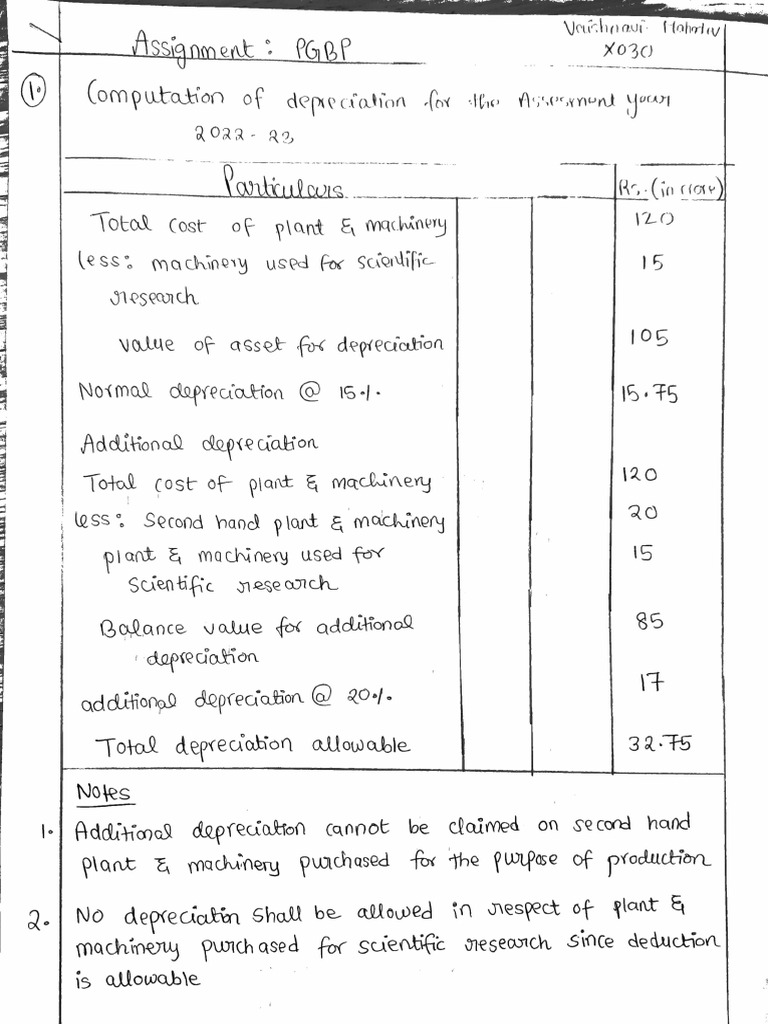 Assignment: PGBP
X030
1. Computation of depreciation for the Assesment year
2022-23
Particulars Rs. (in crore)
Total cost of plant & machinery 120
less: machinery used for scientific 15
research
value of asset for depreciation 105
Normal depreciation @ 15% 15.75
Additional depreciation
Total cost of plant & machinery 120
less: Second hand plant & machinery 20
plant & machinery used for 15
scientific research
Balance value for additional 85
depreciation
additional depreciation @ 20% 17
Total depreciation allowable 32.75
Notes
1. Additional depreciation cannot be claimed on second hand
plant & machinery purchased for the purpose of production
2. No depreciatin shall be allowed in respect of plant &
machinery purchased for scientific research since deduction
is allowable